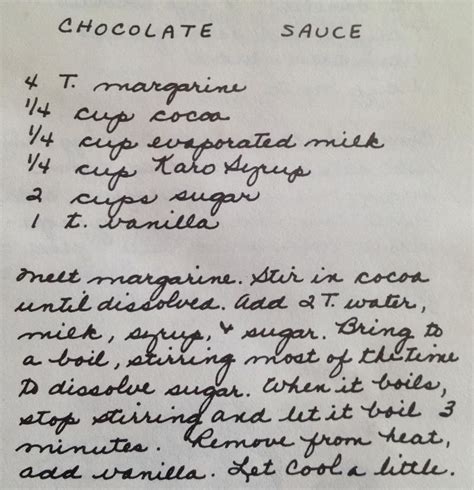 CHOCOLATE SAUCE
4 T. margarine
1/4 cup cocoa
1/4 cup evaporated milk
1/4 cup Karo Syrup
2 cups sugar
1 t. vanilla
Melt margarine. Stir in cocoa
until dissolved. Add 2 T. water,
milk, syrup, & sugar. Bring to
a boil, stirring most of the time
to dissolve sugar. When it boils,
stop stirring and let it boil 3
minutes. Remove from heat,
add vanilla. Let cool a little.